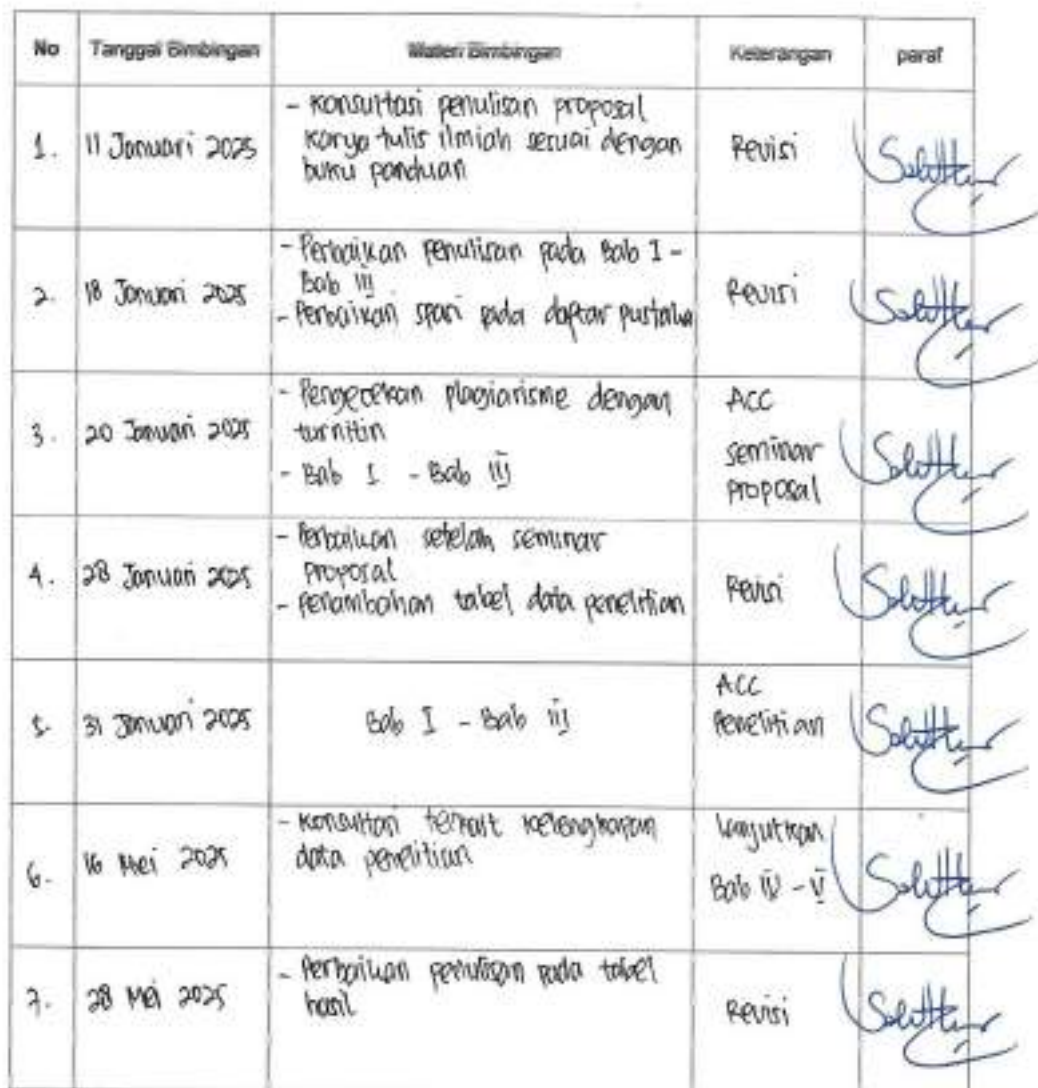 No Tanggal Bimbingan Materi Bimbingan Keterangan paraf
1. 11 Januari 2025
- Konsultasi penulisan proposal
karya tulis ilmiah sesuai dengan
buku panduan
Revisi
2. 18 Januari 2025
- Perbaikan penulisan pada Bab I -
Bab III
- Perbaikan spasi pada daftar pustaka
Revisi
3. 20 Januari 2025
- Pengecekan plagiarisme dengan
turnitin
- Bab I - Bab III
ACC
seminar
proposal
4. 28 Januari 2025
- Perbaikan setelah seminar
proposal
- penambahan tabel data penelitian
Revisi
5. 31 Januari 2025
Bab I - Bab III
ACC
Penelitian
6. 16 Mei 2025
- Konsultasi terkait kelengkapan
data penelitian
Lanjutkan
Bab IV - V
7. 28 Mei 2025
- Perbaikan penulisan pada tabel
hasil
Revisi